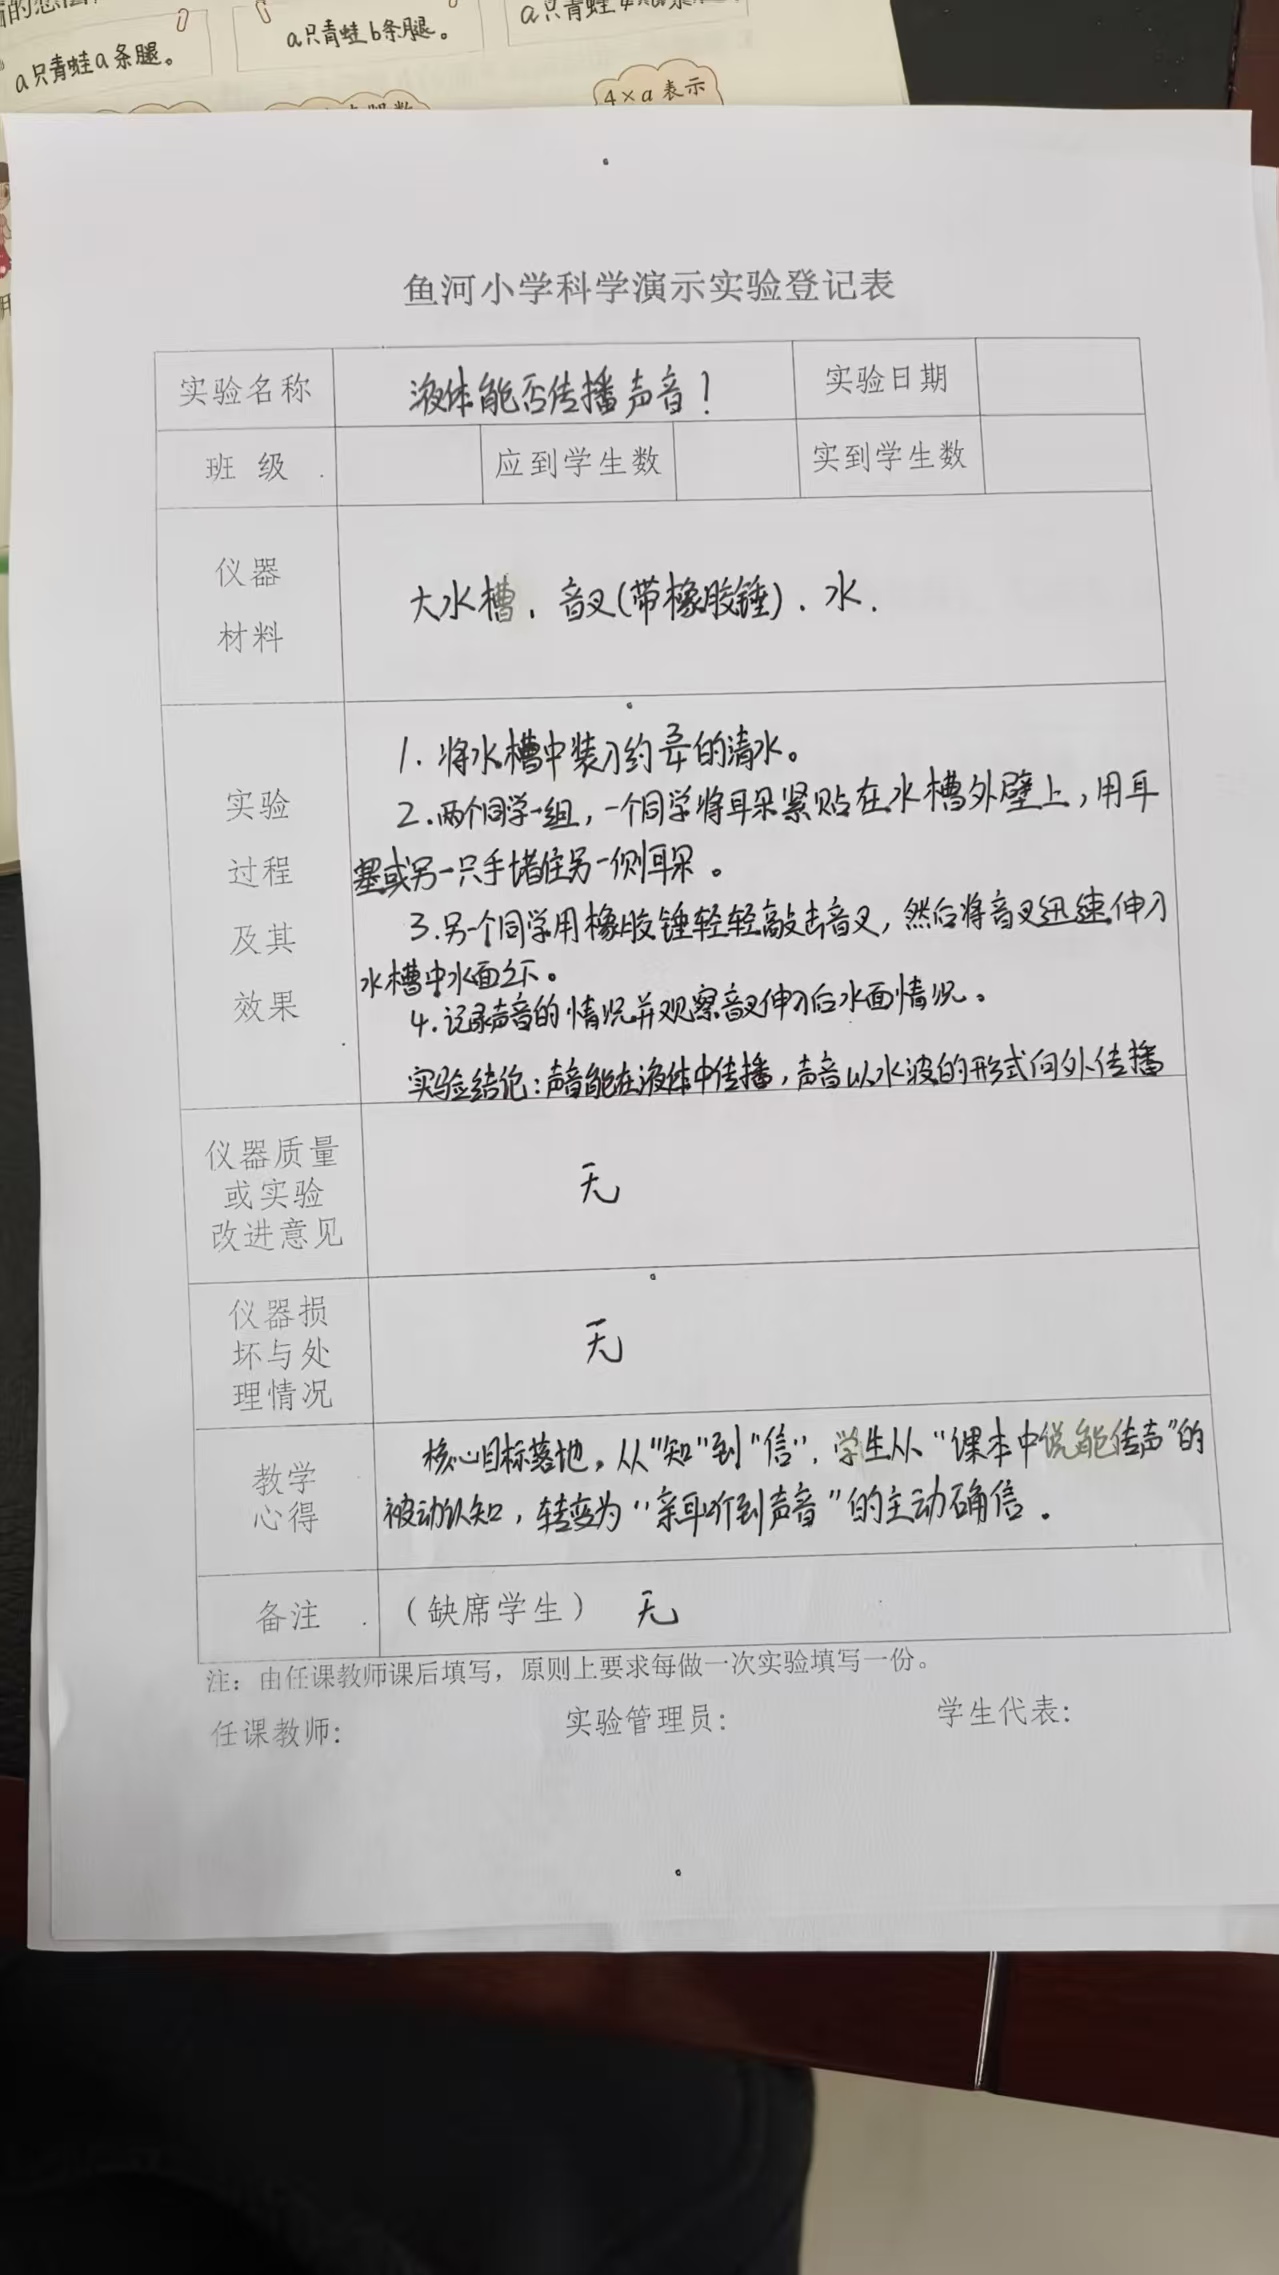 a只青蛙a条腿。
a只青蛙b条腿。
a只青蛙
4×a表示
鱼河小学科学演示实验登记表
实验名称 液体能否传播声音! 实验日期
班 级 应到学生数 实到学生数
仪器
材料
大水槽、音叉(带橡胶锤)、水.
实验
过程
及其
效果
1. 将水槽中装入约 的清水。
2.两个同学一组,一个同学将耳朵紧贴在水槽外壁上,用耳
塞或另一只手堵住另一侧耳朵。
3.另一个同学用橡胶锤轻轻敲击音叉,然后将音叉迅速伸入
水槽中水面之下。
4.记录声音的情况并观察音叉伸入后水面情况。
实验结论:声音能在液体中传播,声音以水波的形式向外传播
仪器质量
或实验
改进意见
无
仪器损
坏与处
理情况
无
教学
心得
核心目标落地。从“知”到“信”,学生从“课本中说能传声”的
被动认知,转变为“亲耳听到声音”的主动确信.
备注 (缺席学生) 无
注:由任课教师课后填写,原则上要求每做一次实验填写一份。
任课教师: 实验管理员: 学生代表: